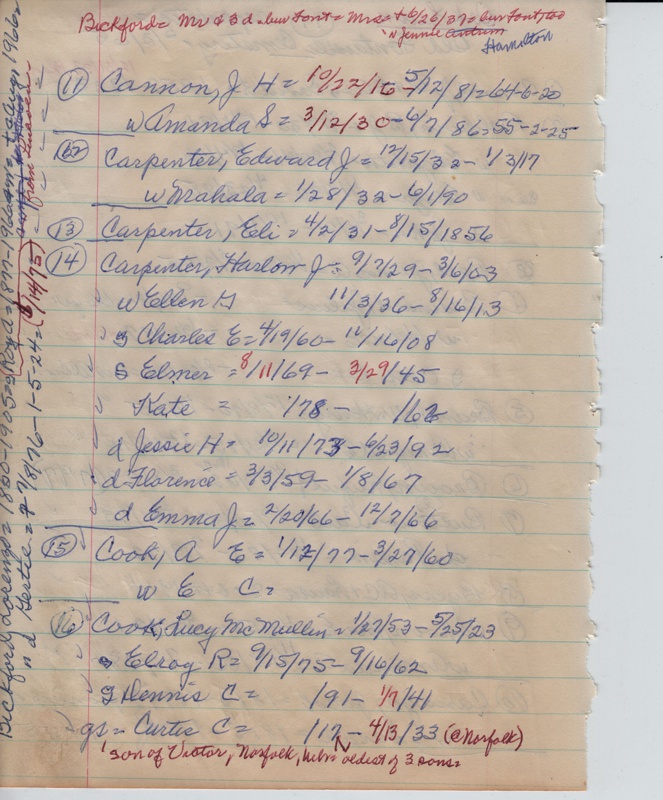 Bickford = Mr & 3 d. bur Font = Mrs = + 6/26/37 = bur Font, too
"N Jennie Antrum
Hamilton
(11) Cannon, J H = 10/22/16 - 5/12/81 = 64-6-20
w Amanda S = 3/12/30 - 6/7/86 = 55-2-25
(12) Carpenter, Edward J = 12/15/32 - 1/3/17
w Mahala = 1/28/32 - 6/1/90
(13) Carpenter, Eli = 4/2/31 - 8/15/1856
(14) Carpenter, Harlow J = 9/7/29 - 3/6/03
w Ellen G 11/3/36 - 8/16/13
s Charles E = 4/19/60 - 11/16/08
s Elmer = 8/11/69 - 3/29/45
Kate = /78 - /62
d Jessie H = 10/11/73 - 6/23/92
d Florence = 3/3/59 - 1/8/67
d Emma J = 2/20/66 - 12/7/66
(15) Cook, A E = 1/12/77 - 3/27/60
w E C =
(16) Cook, Lucy McMullin = 1/27/53 - 5/25/23
s Elroy R = 9/15/75 - 9/16/62
g Dennis C = /91 - 1/7/41
gs = Curtis C = /17 - 4/13/33 (@ Norfolk)
son of Victor, Norfolk, Nebr N oldest of 3 sons =
Bickford, Lorenzo = 1850-1905 = s Roy
d Gertie = + 7/8/76 - 1-5-24 = (8/14/75)